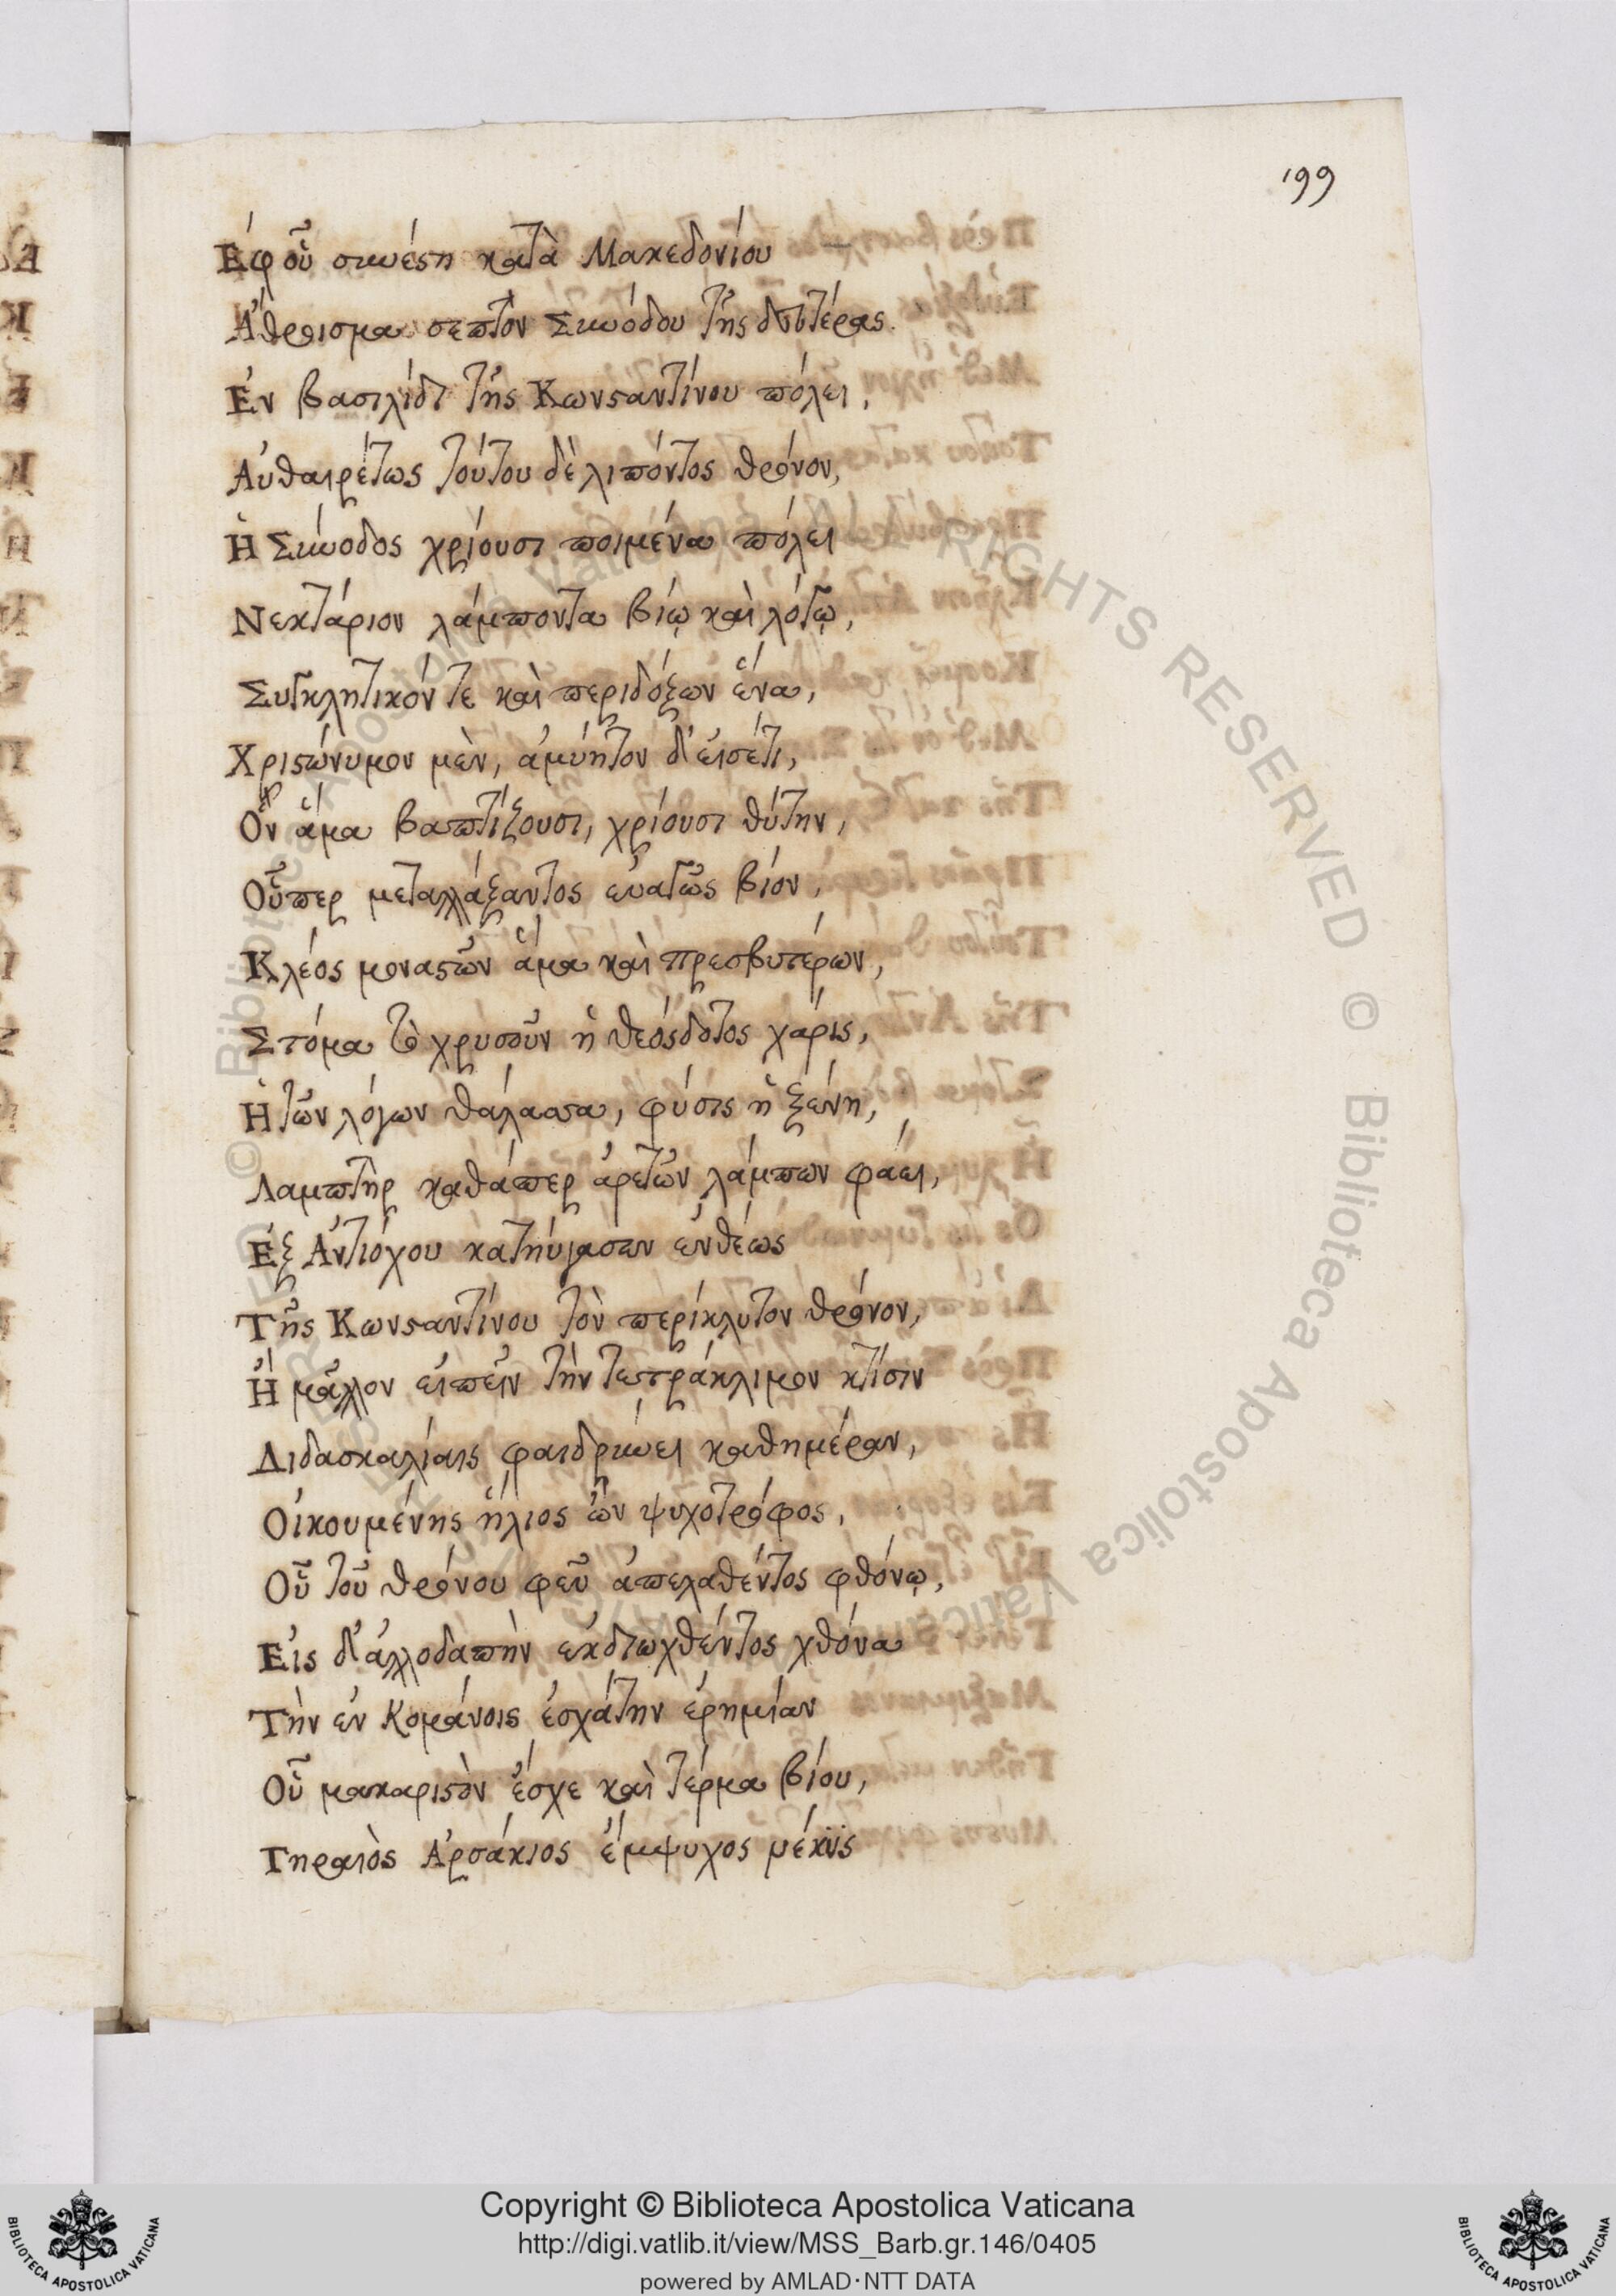 199
Ἐφ οὗ συνέστη κατὰ Μακεδονίου
Ἄθροισμα σεπτὸν Συνόδου τῆς δευτέρας.
Ἐν βασιλίδι τῆς Κωνσταντίνου πόλει,
Αὐθαιρέτως τούτου δὲ λιπόντος θρόνον,
Ἡ Σύνοδος χρίουσι ποιμένα πόλει
Νεκτάριον λάμποντα βίῳ καὶ λόγῳ,
Συγκλητικόν τε καὶ περιδόξων ἕνα,
Χριστώνυμον μὲν, ἀμύητον δ' εἰσέτι,
Ὃν ἅμα βαπτίζουσι, χρίουσι θύτην,
Οὗπερ μεταλλάξαντος εὐαγῶς βίον,
Κλέος μοναστῶν ἅμα καὶ πρεσβυτέρων,
Στόμα τὸ χρυσοῦν ἡ θεόσδοτος χάρις,
Ἡ τῶν λόγων θάλασσα, φύσις ἡ ξένη,
Λαμπτὴρ καθάπερ ἀρετῶν λάμπων φάει,
Ἐξ Ἀντιόχου κατηύγασεν ἐνθέως
Τῆς Κωνσταντίνου τὸν περίκλυτον θρόνον,
Ἢ μᾶλλον εἰπεῖν τὴν τετράκλιμον κτίσιν
Διδασκαλίαις φαιδρύνει καθημέραν,
Οἰκουμένης ἥλιος ὢν ψυχοτρόφος,
Οὗ τοῦ θρόνου φεῦ ἀπελαθέντος φθόνῳ,
Εἰς δ' ἀλλοδαπὴν ἐκδιωχθέντος χθόνα
Τὴν ἐν Κομάνοις ἐσχάτην ἐρημίαν
Οὗ μακαριστὸν ἔσχε καὶ τέρμα βίου,
Γηραιὸς Ἀρσάκιος ἔμψυχος νέκυς
Copyright © Biblioteca Apostolica Vaticana
http://digi.vatlib.it/view/MSS_Barb.gr.146/0405
powered by AMLAD·NTT DATA